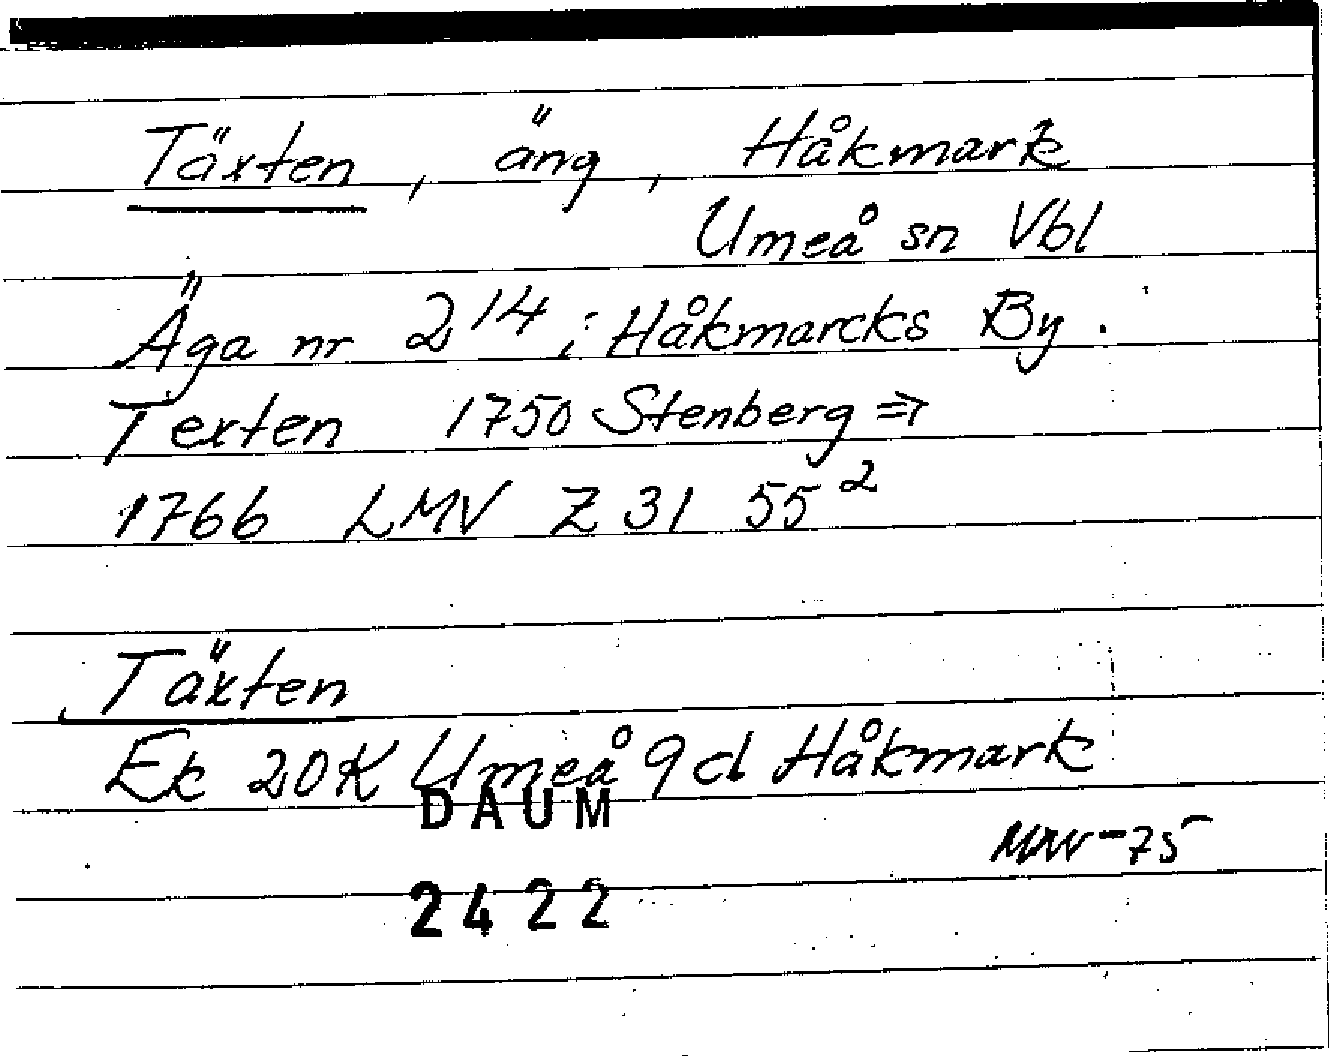 Täxten, äng, Håkmark
Umeå sn Vbl
Äga nr 2¹⁴; Håkmarcks By.
Texten 1750 Stenberg ⇒
1766 LMV Z 31 55²
Täxten
Ek 20K Umeå 9d Håkmark
DAUM
-75
2422